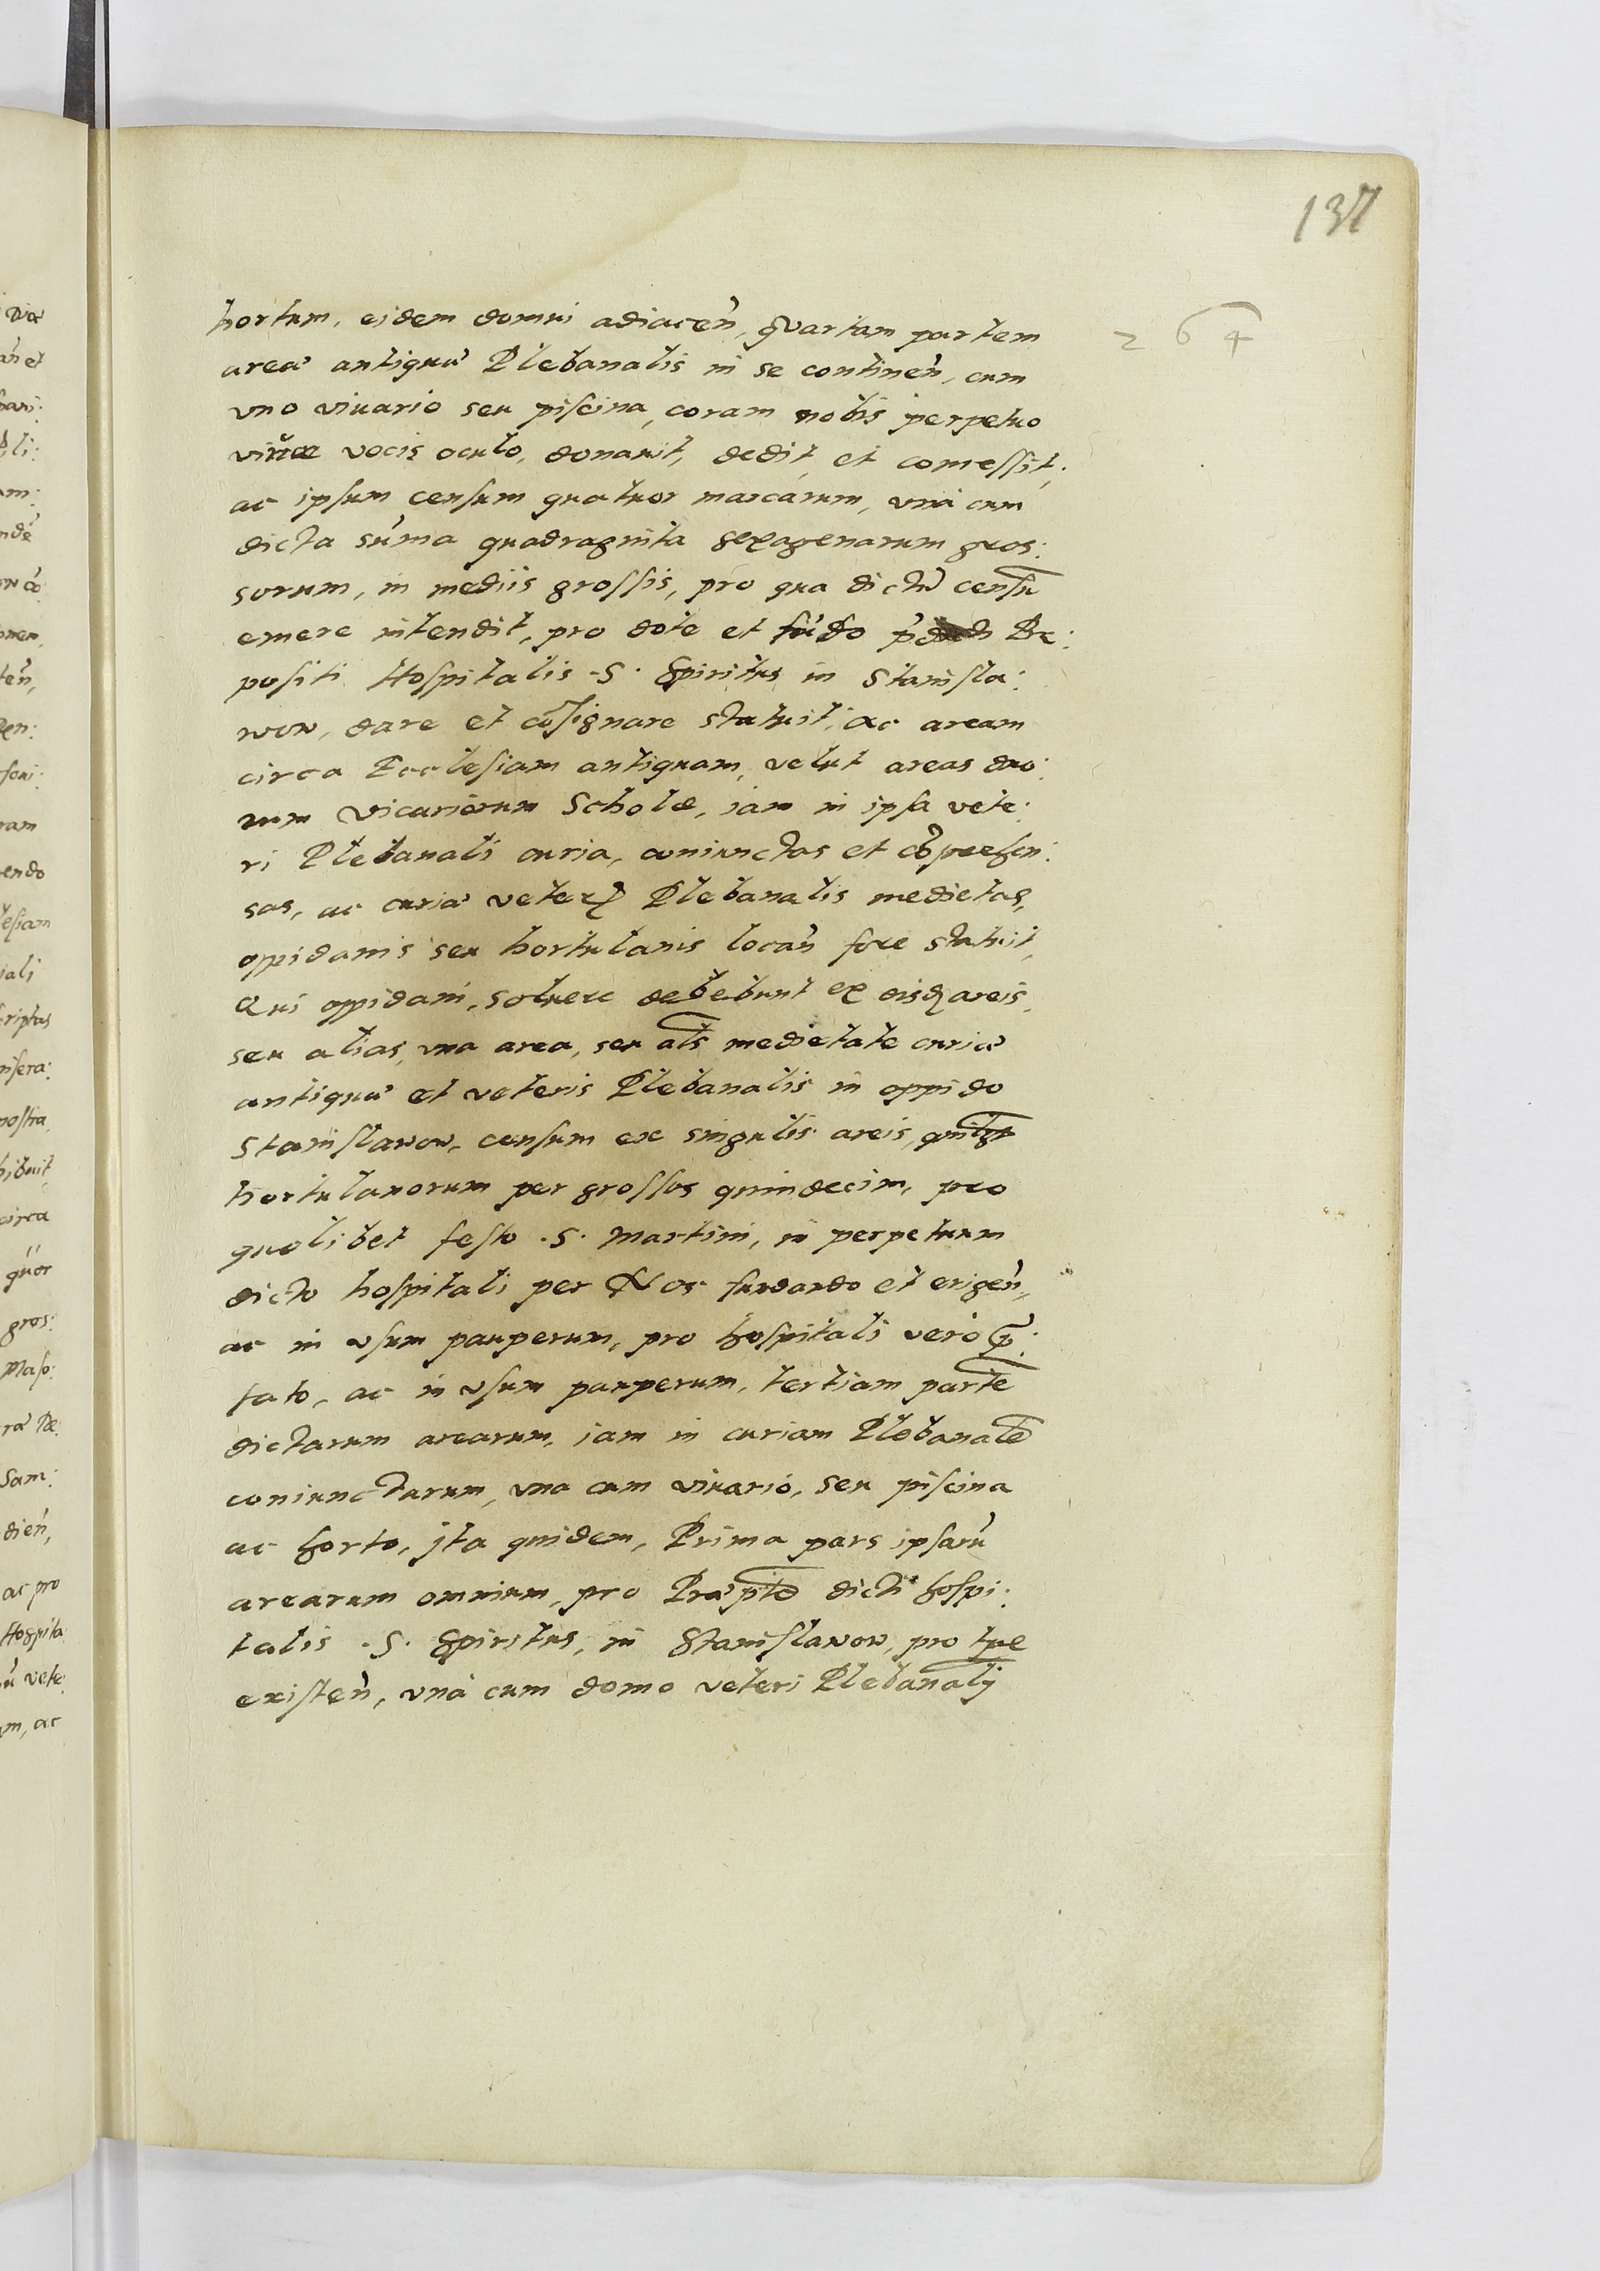 137
264
hortum, eidem domui adiaceñ, quartam partem
areæ antiquæ Plebanalis in se continen̄, cum
vno viuario seu piscina, coram nobis perpetuo
viuæ vocis oculo, donauit, dedit, et comessit,
ac ipsum censum quatuor marcarum, vnà cum
dicta sūma quadraginta sexagenarum gros:
sorum, in mediis grossis, pro qua dictū censū
emere intendit, pro dote et fūdo
positi Hospitalis .S. Spiritus in Stanisla:
wow, dare et cōsignare statuit, ac aream
circa Ecclesiam antiquam, velut areas duo:
rum Vicariorum Scholæ, iam in ipsa vete:
ri Plebanali curia, coniunctas et cōprehen:
sas, ac curiæ veteris Plebanalis medietas,
oppidanis seu hortulanis locan̄ fore statuit,
Qui oppidani, soluere debebunt ex eisdē areis,
seu alias, vna area, seu als̄ medietate curiæ
antiquæ et veteris Plebanalis in oppido
Stanislawow, censum ex singulis areis,
hortulanorum per grossos quindecim, pro
quolibet festo .S. Martini, in perpetuum
dicto hospitali per Nos fundando et erigen̄,
ac in vsum pauperum, pro hospitali vero p̄:
fato, ac in vsum pauperum, tertiam partē
dictarum arearum, iam in curiam Plebanalē
coniunctarum, vna cum viuario, seu piscina
ac horto, jta quidem, Prima pars ipsarū
arearum omnium, pro Præptō dicti hospi:
talis .S. Spiritus, in Stanislawow, pro tpē
existen̄, vnà cum domo veteri Plebanalj